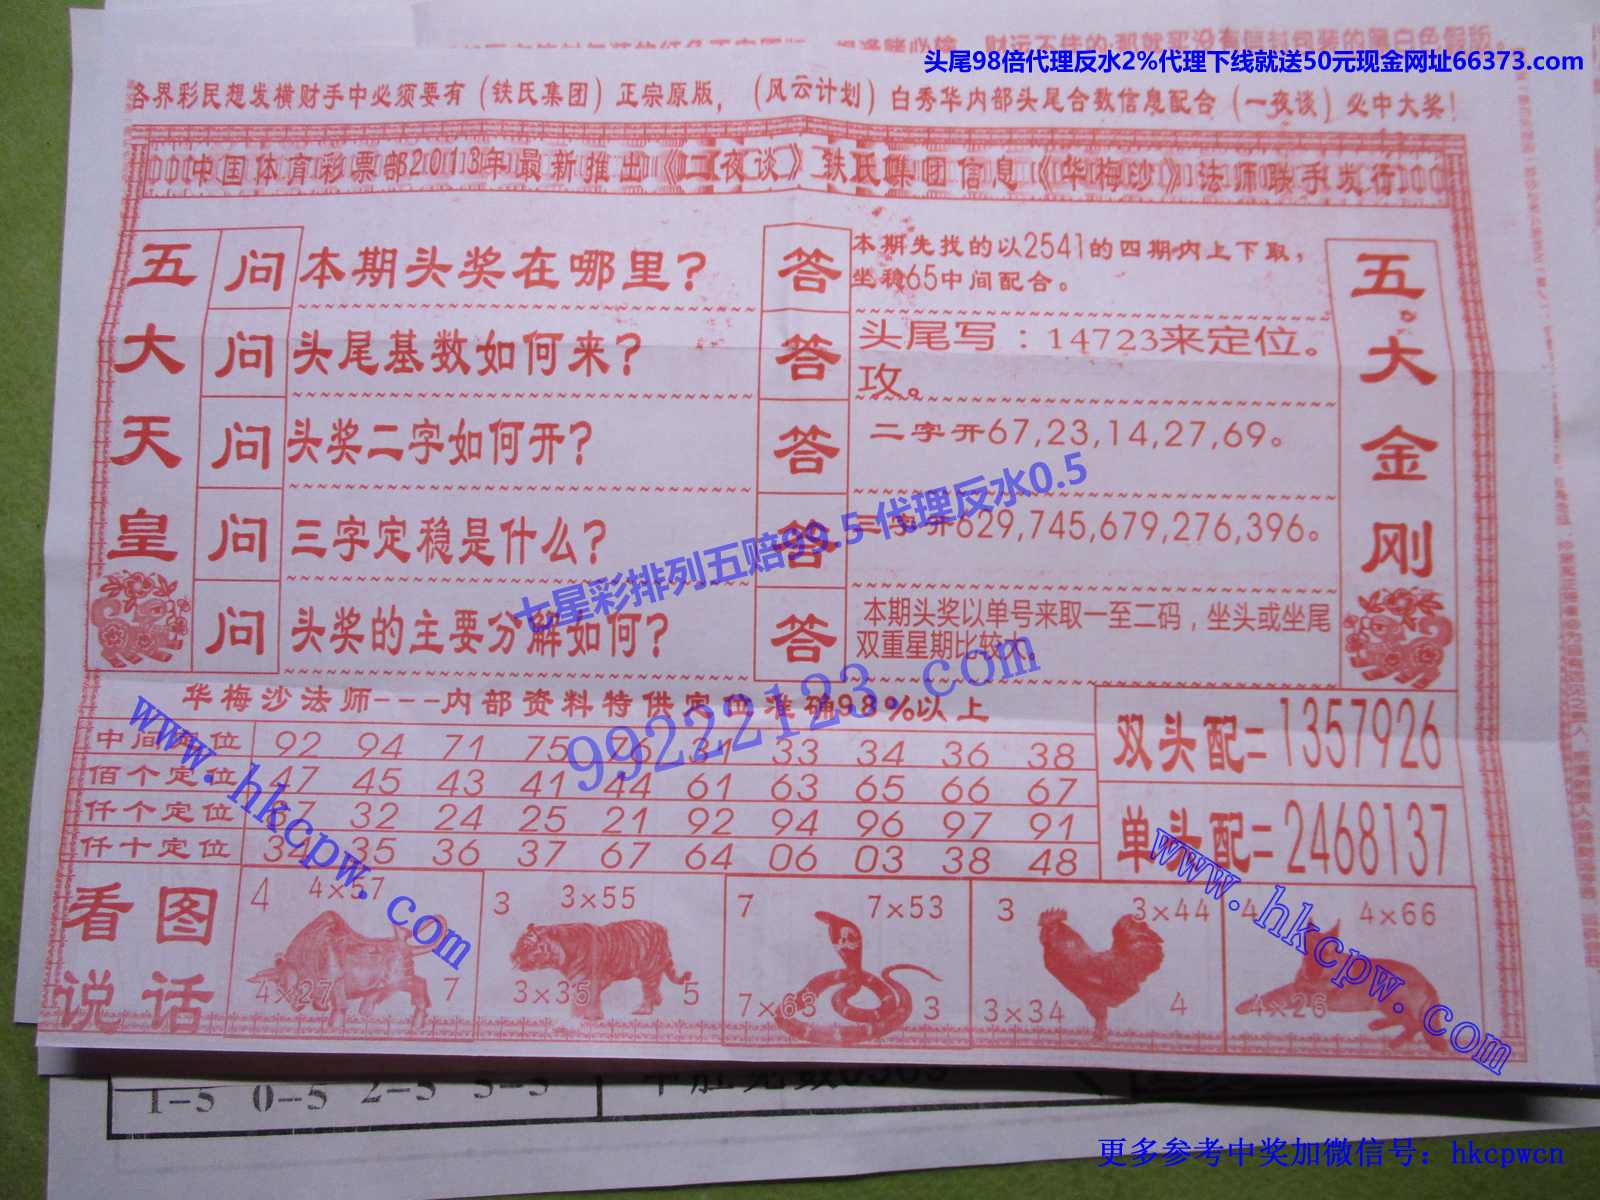 头尾98倍代理反水2%代理下线就送50元现金网址66373.com
各界彩民想发横财手中必须要有（铁氏集团）正宗原版，（风云计划）白秀华内部头尾合数信息配合（一夜谈）必中大奖！
中国体育彩票部2013年最新推出《二夜谈》铁氏集团信息《华梅沙》法师联手发行
五大天皇
问 本期头奖在哪里？
答 本期先找的以2541的四期内上下取，
坐稳65中间配合。
问 头尾基数如何来？
答 头尾写：14723来定位。
攻。
问 头奖二字如何开？
答 二字开67,23,14,27,69。
问 三字定稳是什么？
答 三字开629,745,679,276,396。
问 头奖的主要分解如何？
答 本期头奖以单号来取一至二码，坐头或坐尾
双重星期比较大。
五大金刚
七星彩排列五赔99.5 代理反水0.5
99222123.com
华梅沙法师---内部资料特供定位准确98%以上
中间两位 92 94 71 75 76 31 33 34 36 38
佰个定位 47 45 43 41 44 61 63 65 66 67
仟个定位 32 24 25 21 92 94 96 97 91
仟十定位 34 35 36 37 67 64 06 03 38 48
双头配=1357926
单头配=2468137
www.hkcpw.com
www.hkcpw.com
看图
说话
4 4×57
4×27 7
3 3×55
3×35 5
7 7×53
7×63 3
3 3×44
3×34 4
4 4×66
4×26
1-5 0-5 2-5
更多参考中奖加微信号：hkcpwcn